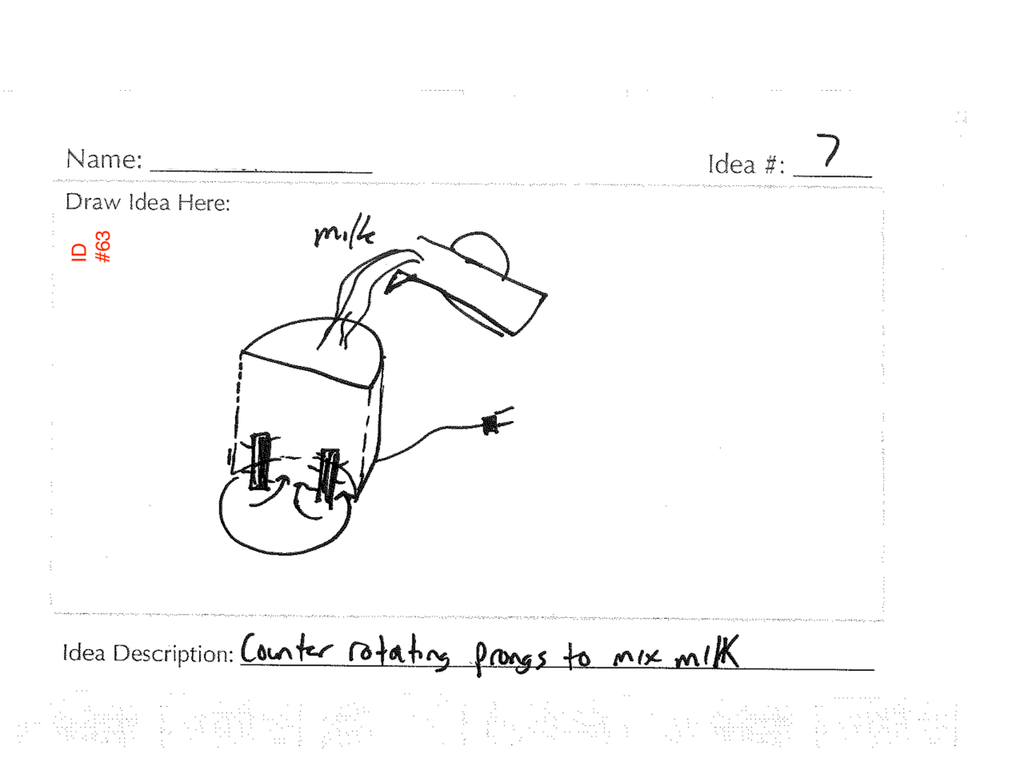 Name:
Idea #: 7
Draw Idea Here:
ID
#63
milk
Idea Description: Counter rotating prongs to mix milk